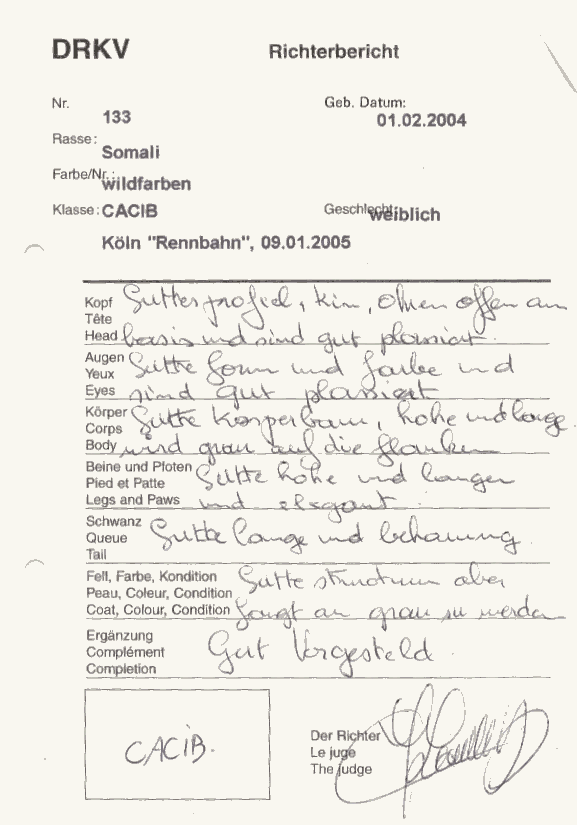 DRKV Richterbericht
Nr. 133
Geb. Datum: 01.02.2004
Rasse: Somali
Farbe/Nr.: wildfarben
Klasse: CACIB
Geschlecht: weiblich
Köln "Rennbahn", 09.01.2005
Kopf Gutte profiel, kin, ohren offen am
Tête
Head basis und sind gut plassiert.
Augen Gutte form und farbe und
Yeux
Eyes sind gut plassiert
Körper Gutte Körperbau, hohe und lange
Corps
Body wird grau auf die flanken
Beine und Pfoten Gutte hohe und langen
Pied et Patte
Legs and Paws und elegant.
Schwanz
Queue Gutte lange und behaarung.
Tail
Fell, Farbe, Kondition Gutte struktuur aber
Peau, Coleur, Condition
Coat, Colour, Condition fangt an grau zu werden
Ergänzung
Complément Gut Vorgesteld.
Completion
CACIB.
Der Richter
Le juge
The judge